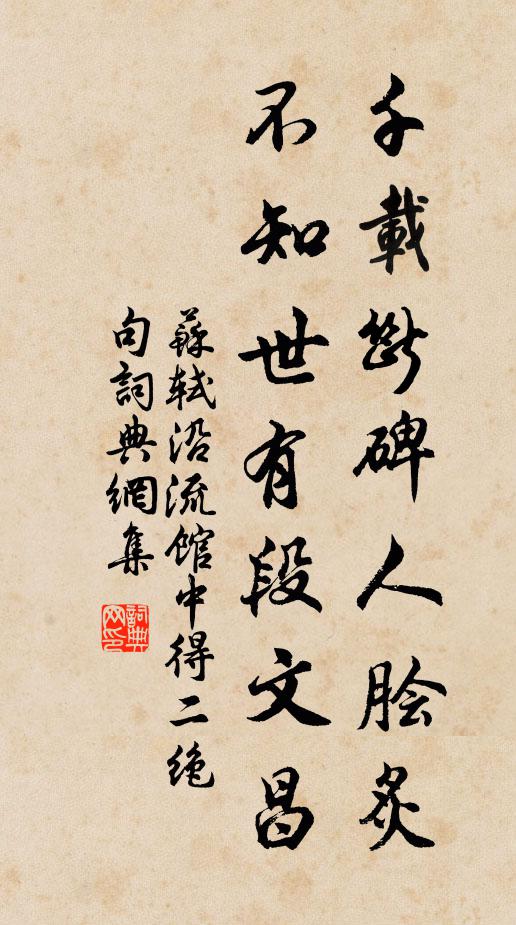 千載斷碑人膾炙
不知世有段文昌
蘇軾沿流館中得二絶
句詞典網集
詞典网印